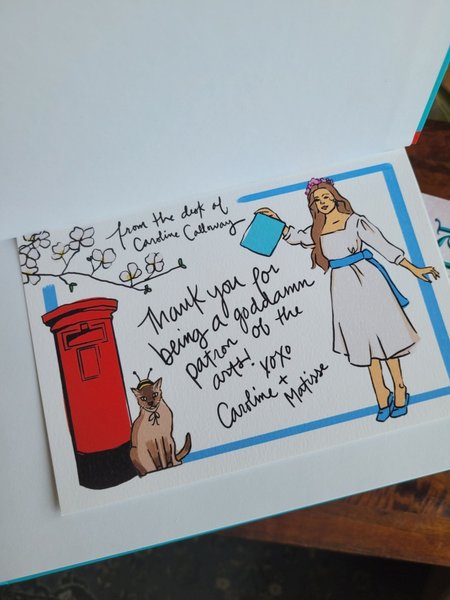 from the desk of
Caroline Calloway
Thank you for
being a goddamn
patron of the
arts! xoxo
Caroline +
Matisse